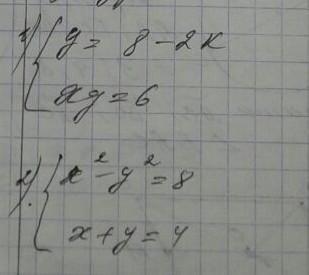 1) { y = 8 - 2x
xy = 6
2) { x² - y² = 8
x + y = 4